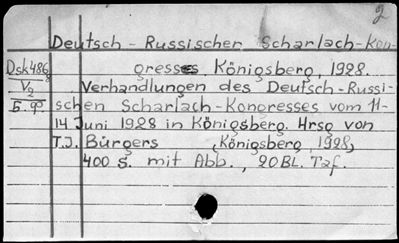 2
Deutsch - Russischer Scharlach-Kon-
Dsk486 gresses Königsberg, 1928.
V2 Verhandlungen des Deutsch-Russi-
Б.φ schen Scharlach-Kongresses vom 11-
14 Juni 1928 in Königsberg. Hrsg von
T.J. Bürgers (Königsberg, 1928,
400 S. mit Abb., 20 Bl. Taf.